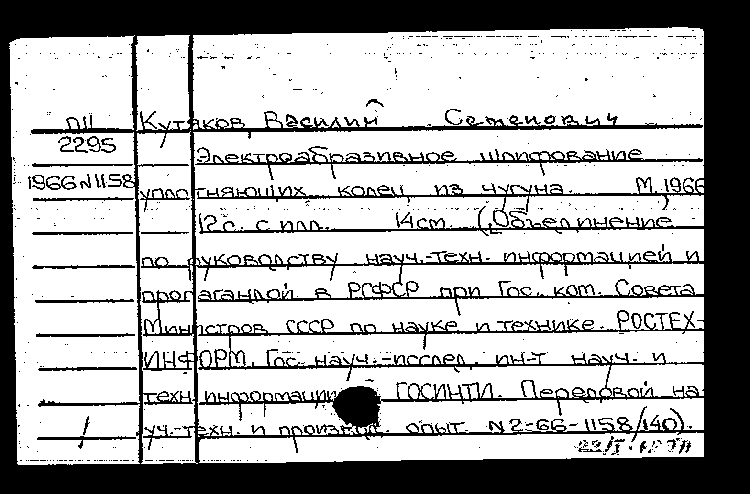 П11 Кутяков, Василий Семенович
2295
Электроабразивное шлифование
1966 N1158 уплотняющих колец из чугуна. М, 1966
12с. с илл. 14см. (Объединение
по руководству науч.-техн. информацией и
пропагандой в РСФСР при Гос. ком. Совета
Министров СССР по науке и технике. РОСТЕХ-
ИНФОРМ. Гос. науч.-исслед. ин-т науч. и
техн. информации ГОСИНТИ. Передовой на-
уч.-техн. и производ. опыт. N2-66-1158/140).